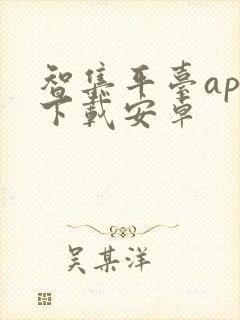 智集平臺ap
下載安卓
吴某洋